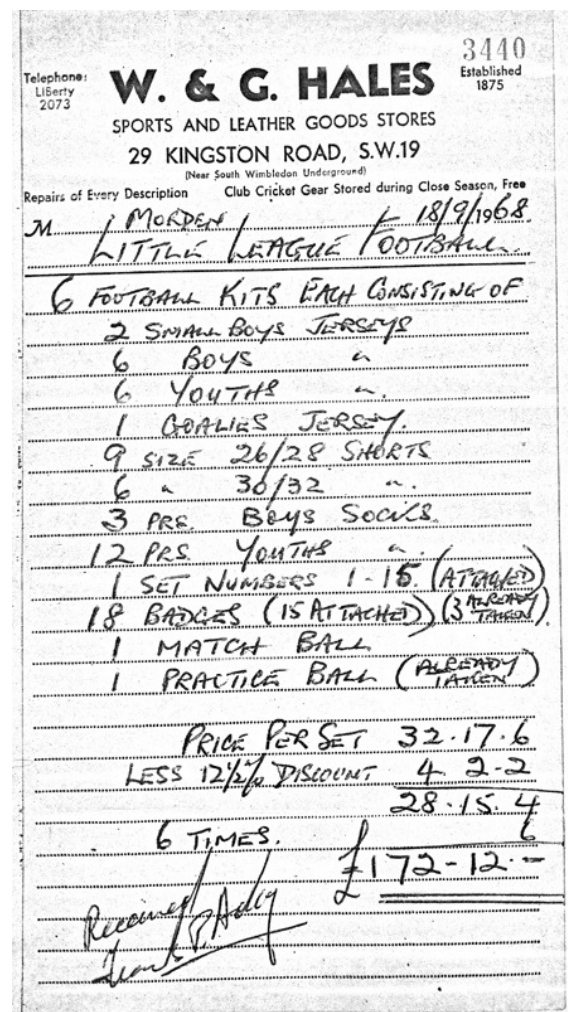 3440
Telephone:
LIBerty
2073
W. & G. HALES
Established
1875
SPORTS AND LEATHER GOODS STORES
29 KINGSTON ROAD, S.W.19
(Near South Wimbledon Underground)
Repairs of Every Description Club Cricket Gear Stored during Close Season, Free
M MORDEN 18/9/1968.
LITTLE LEAGUE FOOTBALL.
6 FOOTBALL KITS EACH CONSISTING OF
2 SMALL BOYS JERSEYS
6 BOYS "
6 YOUTHS ".
1 GOALIES JERSEY.
9 SIZE 26/28 SHORTS
6 " 30/32 ".
3 PRS. BOYS SOCKS.
12 PRS. YOUTHS ".
1 SET NUMBERS 1-15. (ATTACHED)
18 BADGES (15 ATTACHED) (3 ALREADY TAKEN).
1 MATCH BALL
1 PRACTICE BALL (ALREADY TAKEN)
PRICE PER SET 32.17.6
LESS 12½% DISCOUNT 4.2-2
28.15.4
6 TIMES. 6
£172-12.-
Received
Frank P.